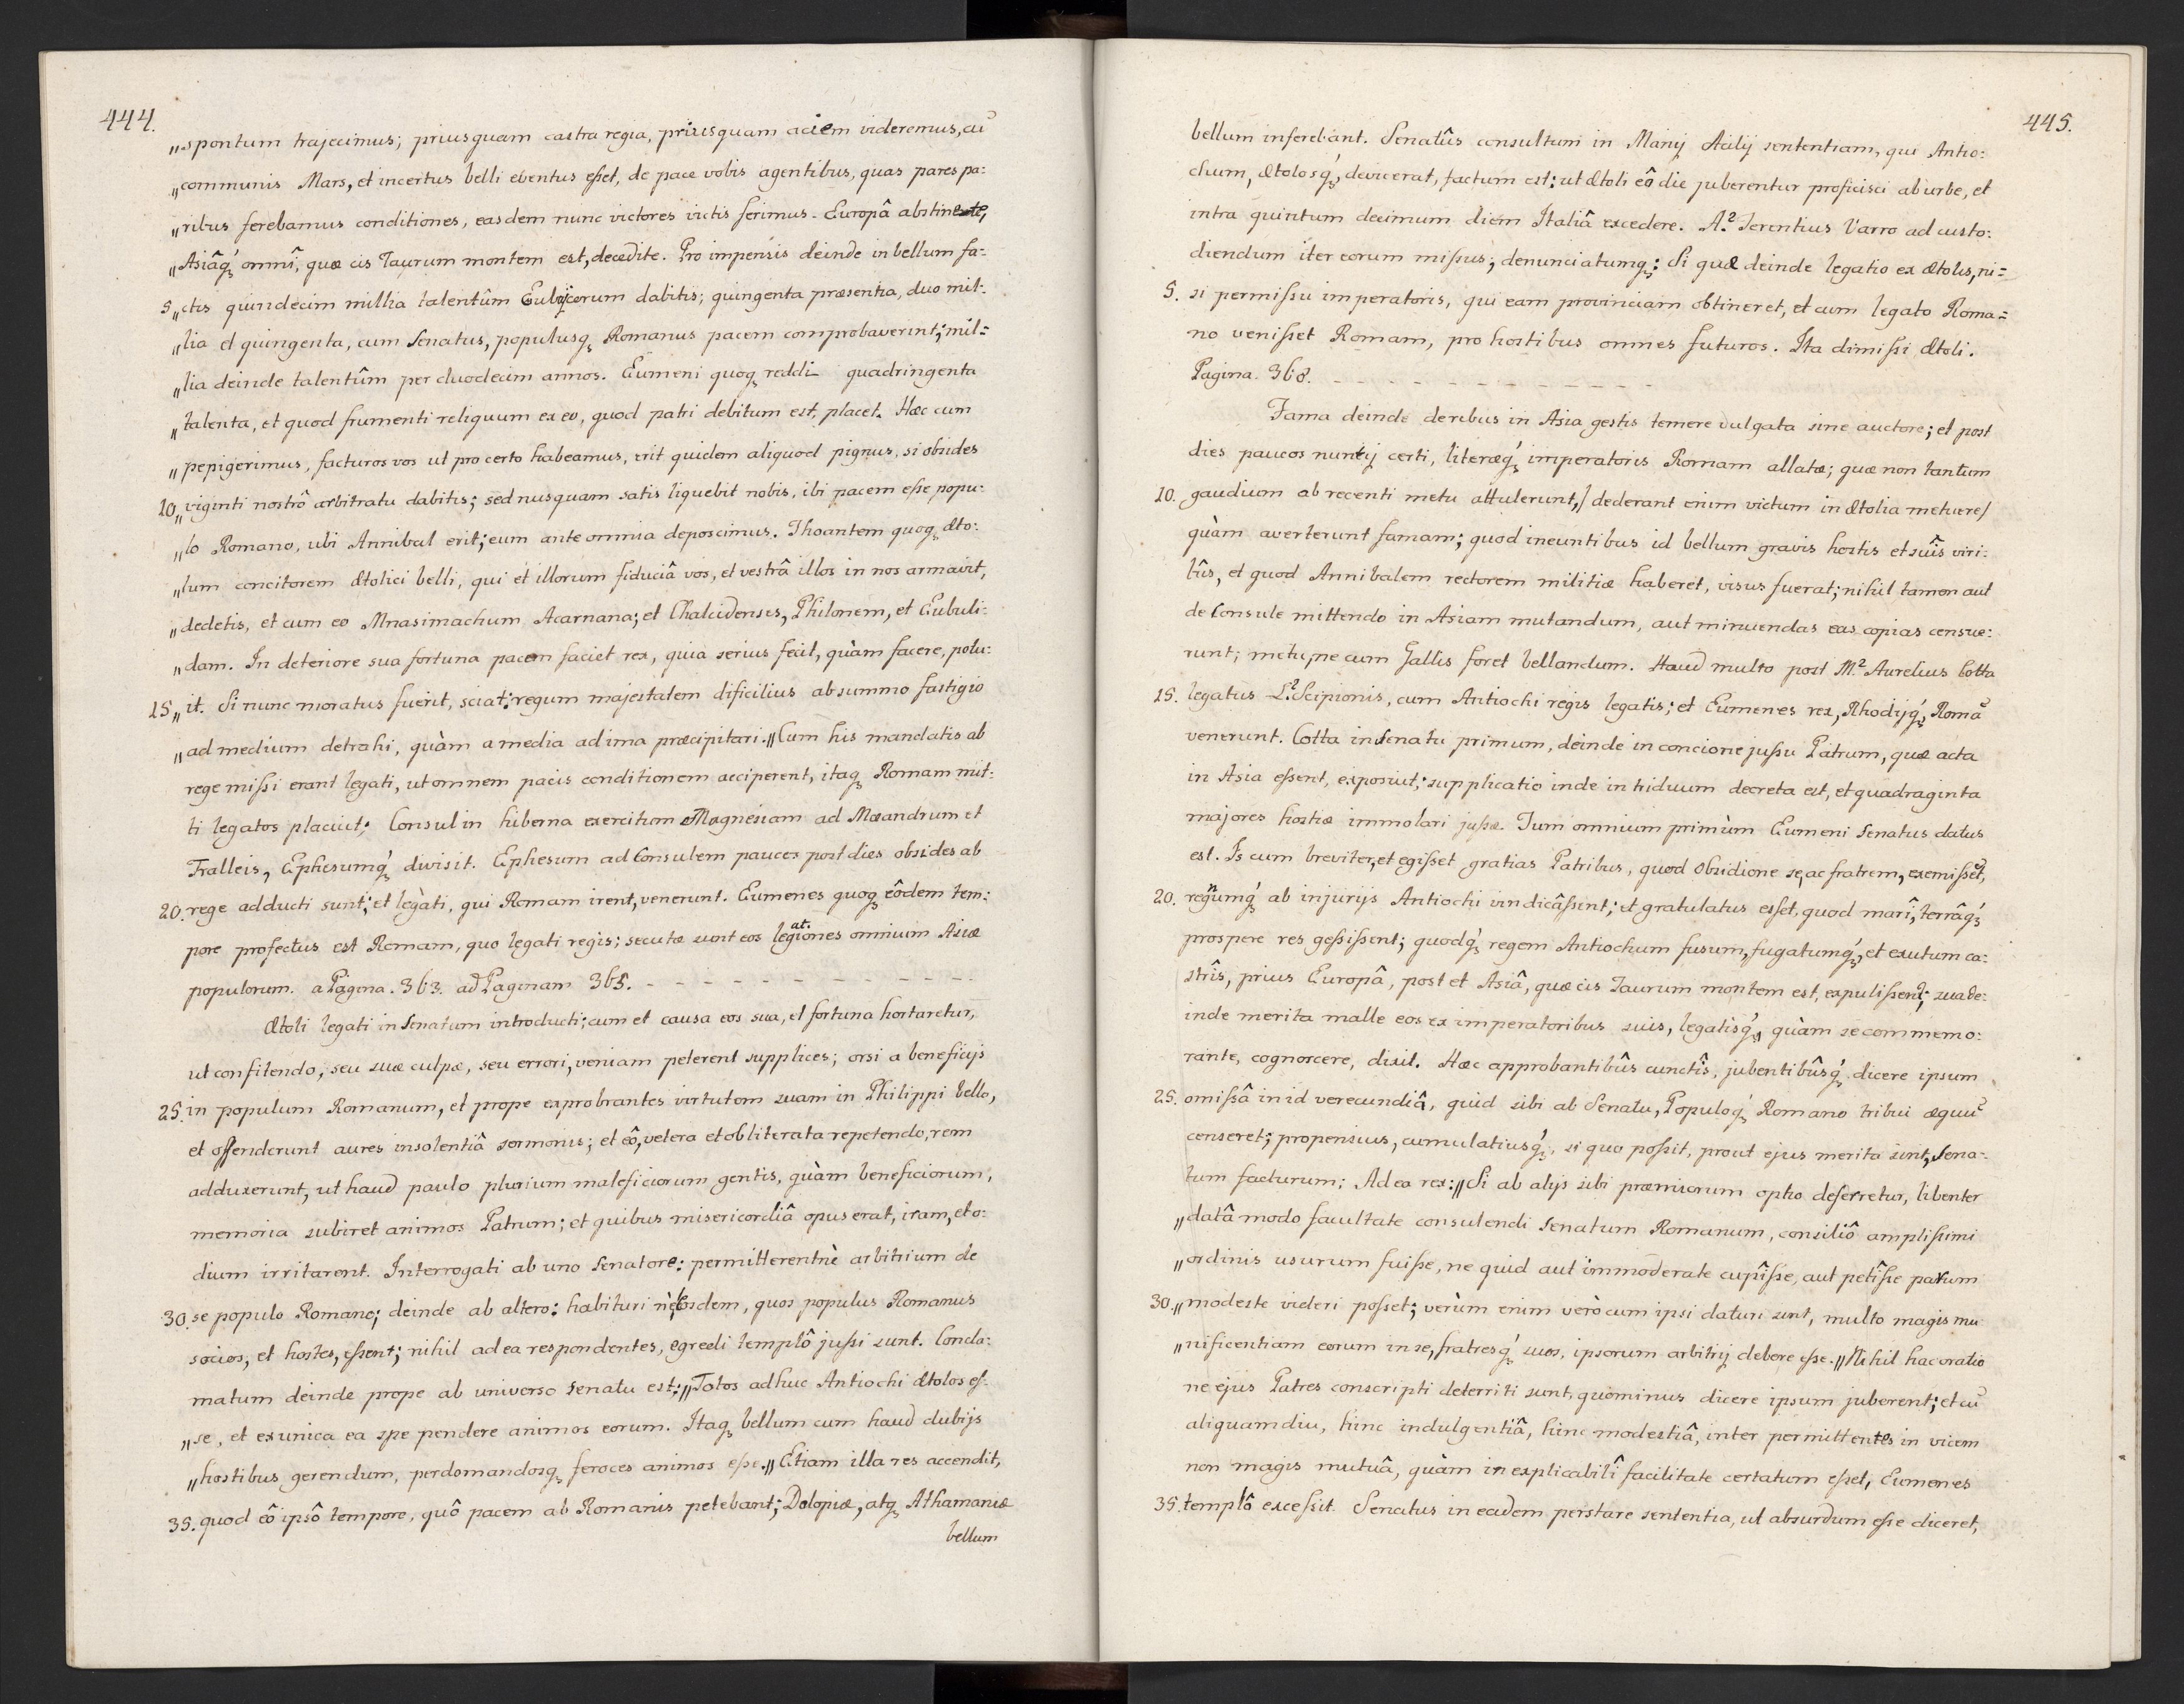 444.
„spontum trajecimus; priusquam castra regia, priusquam aciem videremus, cū
„communis Mars, et incertus belli eventus eſset, de pace vobis agentibus, quas pares pa:
„ribus ferebamus conditiones, easdem nunc victores victis ferimus. Europâ abstinete,
„Asiâq́ꝫ omnî, quæ cis Taurum montem est, decedite. Pro impensis deinde in bellum fa:
5. „ctis quindecim millia talentûm Euboicorum dabitis; quingenta præsentia, duo mil:
„lia et quingenta, cum Senatus, populusqꝫ Romanus pacem comprobaverint; mil=
„lia deinde talentûm per duodecim annos. Eumeni quoqꝫ reddi quadringenta
„talenta, et quod frumenti reliquum ex eo, quod patri debitum est, placet. Hæc cum
„pepigerimus, facturos vos ut pro certo habeamus, erit quidem aliquod pignus, si obsides
10. „viginti nostrô arbitratu dabitis; sed nusquam satis liquebit nobis, ibi pacem eſse popu:
„lo Romano, ubi Annibal erit; eum ante omnia deposcimus. Thoantem quoqꝫ Æto:
„lum concitorem Ætolici belli, qui et illorum fiduciâ vos, et vestrâ illos in nos armavit,
„dedetis, et cum eo Mnasimachum Acarnana; et Chalcidenses, Philonem, et Eubuli:
„dam. In deteriore sua fortuna pacem faciet rex, quia serius fecit, quàm facere, potu:
15. „it. Si nunc moratus fuerit, sciat: regum majestatem dificilius ab summo fastigio
„ad medium detrahi, quàm a media ad ima præcipitari.„ Cum his mandatis ab
rege miſsi erant legati, ut omnem pacis conditionem acciperent, itaqꝫ Romam mit:
ti legatos placuit; Consul in hiberna exercitum Magnesiam ad Mæandrum et
Tralleis, Ephesumq́ꝫ divisit. Ephesum ad Consulem paucos post dies obsides ab
20. rege adducti sunt; et legàti, qui Romam irent, venerunt. Eumenes quoqꝫ eôdem tem:
pore profectus est Romam, quo legati regis; secutæ sunt eos legationes omnium Asiæ
populorum. a Pagina. 363. ad Paginam 365. - - - - - - - - - - - -
Ætoli legati in Senatum introducti; cum et causa eos sua, et fortuna hortaretur,
ut confitendo, seu suæ culpæ, seu errori, veniam peterent supplices; orsi a beneficijs
25. in populum Romanum, et prope exprobrantes virtutem suam in Philippi bello,
et offenderunt aures insolentiâ sermonis; et eô, vetera et obliterata repetendo, rem
adduxerunt, ut haud paulo plurium maleficiorum gentis, quàm beneficiorum,
memoria subiret animos Patrum; et quibus misericordiâ opus erat, iram, et o:
dium irritarent. Interrogati ab uno Senatore: permitterentnè arbitrium de
30. se populo Romano; deinde ab altero: habituri nè, eosdem, quos populus Romanus
socios, et hostes, eſsent; nihil ad ea respondentes, egredi templô juſsi sunt. Concla:
matum deinde prope ab universo Senatu est: „Totos adhuc Antiochi Ætolos eſ:
„se, et ex unica ea spe pendere animos eorum. Itaqꝫ bellum cum haud dubijs
„hostibus gerendum, perdomandosqꝫ feroces animos eſse.„ Etiam illa res accendit,
35. quod eô ipsô tempore, quô pacem ab Romanis petebant; Dolopiæ, atqꝫ Athamaniæ
bellum
445.
bellum inferebant. Senatûs consultum in Manij Acilij sententiam, qui Antio:
chum, Ætolosq́ꝫ, devicerat, factum est: ut Ætoli eô die juberentur proficisci ab urbe, et
intra quintum decimum diem Italiâ excedere. A.? Terentius Varro ad custo:
diendum iter eorum miſsus; denunciatumqꝫ: Si quæ deinde legatio ex Ætolis, ni=
5. si permiſsu imperatoris, qui eam provinciam obtineret, et cum legato Roma=
no veniſset Romam, pro hostibus omnes futuros. Ita dimiſsi Ætoli.
Pagina. 368. - - - - - - - - - - - -
Fama deinde de rebus in Asia gestis temere vulgata sine auctore; et post
dies paucos nuntij certi, literæq́ꝫ imperatoris Romam allatæ; quæ non tantum
10. gaudium ab recenti metu attulerunt, / dederant enim victum in Ætolia metuere /
quàm averterunt famam; quod ineuntibus id bellum gravis hostis et suîs viri:
bûs, et quod Annibalem rectorem militiæ haberet, visus fuerat; nihil tamen aut
de Consule mittendo in Asiam mutandum, aut minuendas eas copias censue:
runt; metu, ne cum Gallis foret bellandum. Haud multo post M.? Aurelius Cotta
15. legatus L.? Scipionis, cum Antiochi regis legatis; et Eumenes rex, Rhodijq́ꝫ, Romā
venerunt. Cotta in Senatu primum, deinde in concione juſsu Patrum, quæ acta
in Asia eſsent, exposuit; supplicatio inde in triduum decreta est, et quadraginta
majores hostiæ immolari juſsæ. Tum omnium primùm Eumeni Senatus datus
est. Is cum breviter, et egiſset gratias Patribus, quod obsidione se, ac fratrem, exemiſset,
20. regnumq́ꝫ ab injurijs Antiochi vindicâſsent; et gratulatus eſset, quod marî, terrâq́ꝫ
prospere res geſsiſsent; quodq́ꝫ regem Antiochum fusum, fugatumq́ꝫ, et exutum ca:
strîs, prius Europâ, post et Asiâ, quæ cis Taurum montem est, expuliſsent; sua de:
inde merita malle eos ex imperatoribus suis, legatisq́ꝫ, quàm se commemo:
rante, cognoscere, dixit. Hæc approbantibûs cunctîs, jubentibûsq́ꝫ dicere ipsum
25. omiſsâ in id verecundiâ, quid sibi ab Senatu, Populoq́ꝫ Romano tribui æquū
censeret; propensius, cumulatiusq́ꝫ, si quo poſsit, prout ejus merita sint, Sena-
tum facturum; Ad ea rex: „Si ab alijs sibi præmiorum optio deferretur, libenter
„datâ modo facultate consulendi Senatum Romanum, consiliô ampliſsimi
„ordinis usurum fuiſse, ne quid aut immoderate cupîſse, aut petîſse parum
30. „modeste videri poſset; verùm enim verò cum ipsi daturi sint, multo magis mu
„nificentiam eorum in se, fratresq́ꝫ suos, ipsorum arbitrij debere eſse.„ Nihil hac oratio
ne ejus Patres conscripti deterriti sunt, quominus dicere ipsum juberent; et cū
aliquamdiu, hinc indulgentiâ, hinc modestiâ, inter permittentes in vicem
non magis mutuâ, quàm inexplicabilî facilitate certatum eſset, Eumenes
35. templô exceſsit. Senatus in eadem perstare sententia, ut absurdum eſse diceret,